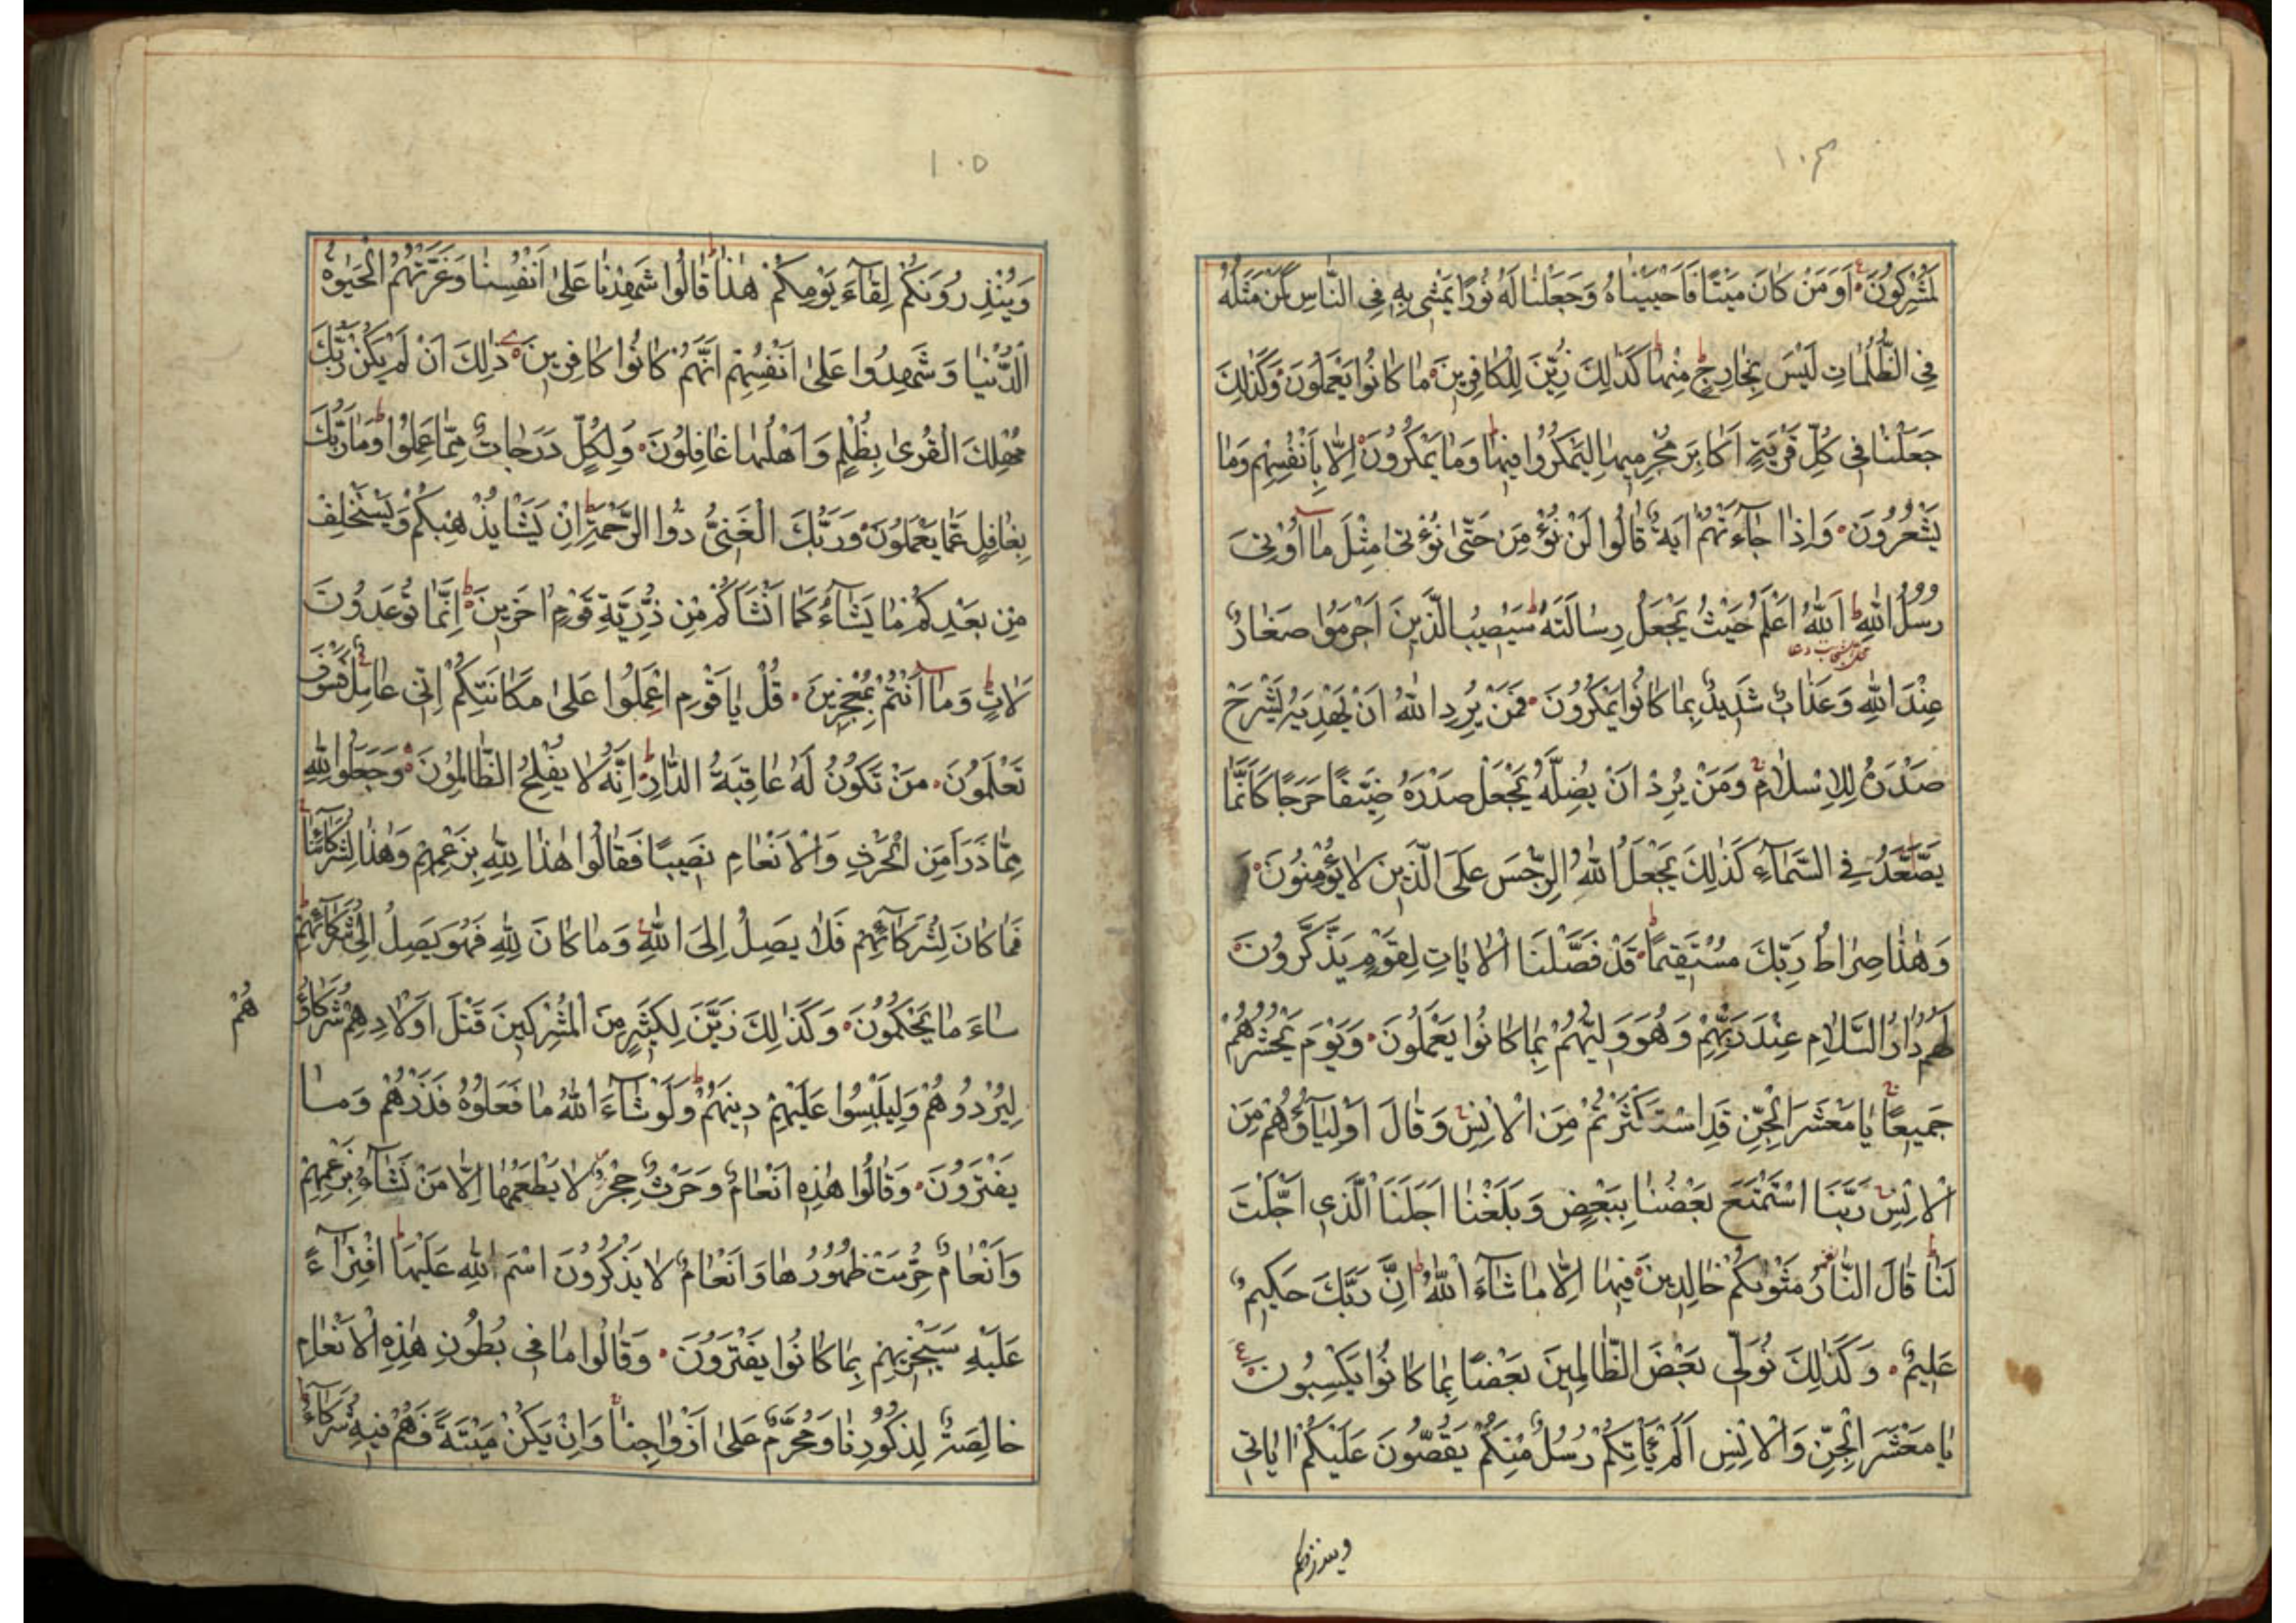 ١٠٤
لَمُشْرِكُونَ أَوَمَنْ كَانَ مَيْتًا فَأَحْيَيْنَاهُ وَجَعَلْنَا لَهُ نُورًا يَمْشِي بِهِ فِي النَّاسِ كَمَنْ مَثَلُهُ
فِي الظُّلُمَاتِ لَيْسَ بِخَارِجٍ مِنْهَا كَذَلِكَ زُيِّنَ لِلْكَافِرِينَ مَا كَانُوا يَعْمَلُونَ وَكَذَلِكَ
جَعَلْنَا فِي كُلِّ قَرْيَةٍ أَكَابِرَ مُجْرِمِيهَا لِيَمْكُرُوا فِيهَا وَمَا يَمْكُرُونَ إِلَّا بِأَنْفُسِهِمْ وَمَا
يَشْعُرُونَ وَإِذَا جَاءَتْهُمْ آيَةٌ قَالُوا لَنْ نُؤْمِنَ حَتَّى نُؤْتَى مِثْلَ مَا أُوتِيَ
رُسُلُ اللَّهِ اَللَّهُ أَعْلَمُ حَيْثُ يَجْعَلُ رِسَالَتَهُ سَيُصِيبُ الَّذِينَ أَجْرَمُوا صَغَارٌ
عِنْدَ اللَّهِ وَعَذَابٌ شَدِيدٌ بِمَا كَانُوا يَمْكُرُونَ فَمَنْ يُرِدِ اللَّهُ أَنْ يَهْدِيَهُ يَشْرَحْ
صَدْرَهُ لِلْإِسْلَامِ وَمَنْ يُرِدْ أَنْ يُضِلَّهُ يَجْعَلْ صَدْرَهُ ضَيِّقًا حَرَجًا كَأَنَّمَا
يَصَّعَّدُ فِي السَّمَاءِ كَذَلِكَ يَجْعَلُ اللَّهُ الرِّجْسَ عَلَى الَّذِينَ لَا يُؤْمِنُونَ
وَهَذَا صِرَاطُ رَبِّكَ مُسْتَقِيمًا قَدْ فَصَّلْنَا الْآيَاتِ لِقَوْمٍ يَذَّكَّرُونَ
لَهُمْ دَارُ السَّلَامِ عِنْدَ رَبِّهِمْ وَهُوَ وَلِيُّهُمْ بِمَا كَانُوا يَعْمَلُونَ وَيَوْمَ يَحْشُرُهُمْ
جَمِيعًا يَا مَعْشَرَ الْجِنِّ قَدِ اسْتَكْثَرْتُمْ مِنَ الْإِنْسِ وَقَالَ أَوْلِيَاؤُهُمْ مِنَ
الْإِنْسِ رَبَّنَا اسْتَمْتَعَ بَعْضُنَا بِبَعْضٍ وَبَلَغْنَا أَجَلَنَا الَّذِي أَجَّلْتَ
لَنَا قَالَ النَّارُ مَثْوَاكُمْ خَالِدِينَ فِيهَا إِلَّا مَا شَاءَ اللَّهُ إِنَّ رَبَّكَ حَكِيمٌ
عَلِيمٌ وَكَذَلِكَ نُوَلِّي بَعْضَ الظَّالِمِينَ بَعْضًا بِمَا كَانُوا يَكْسِبُونَ
يَا مَعْشَرَ الْجِنِّ وَالْإِنْسِ أَلَمْ يَأْتِكُمْ رُسُلٌ مِنْكُمْ يَقُصُّونَ عَلَيْكُمْ آيَاتِي
وينذرونكم
١٠٥
وَيُنْذِرُونَكُمْ لِقَاءَ يَوْمِكُمْ هَذَا قَالُوا شَهِدْنَا عَلَى أَنْفُسِنَا وَغَرَّتْهُمُ الْحَيَوةُ
الدُّنْيَا وَشَهِدُوا عَلَى أَنْفُسِهِمْ أَنَّهُمْ كَانُوا كَافِرِينَ ذَلِكَ أَنْ لَمْ يَكُنْ رَبُّكَ
مُهْلِكَ الْقُرَى بِظُلْمٍ وَأَهْلُهَا غَافِلُونَ وَلِكُلٍّ دَرَجَاتٌ مِمَّا عَمِلُوا وَمَا رَبُّكَ
بِغَافِلٍ عَمَّا يَعْمَلُونَ وَرَبُّكَ الْغَنِيُّ ذُوا الرَّحْمَةِ إِنْ يَشَأْ يُذْهِبْكُمْ وَيَسْتَخْلِفْ
مِنْ بَعْدِكُمْ مَا يَشَاءُ كَمَا أَنْشَأَكُمْ مِنْ ذُرِّيَّةِ قَوْمٍ آخَرِينَ إِنَّمَا تُوعَدُونَ
لَآتٍ وَمَا أَنْتُمْ بِمُعْجِزِينَ قُلْ يَا قَوْمِ اعْمَلُوا عَلَى مَكَانَتِكُمْ إِنِّي عَامِلٌ فَسَوْفَ
تَعْلَمُونَ مَنْ تَكُونُ لَهُ عَاقِبَةُ الدَّارِ إِنَّهُ لَا يُفْلِحُ الظَّالِمُونَ وَجَعَلُوا لِلَّهِ
مِمَّا ذَرَأَ مِنَ الْحَرْثِ وَالْأَنْعَامِ نَصِيبًا فَقَالُوا هَذَا لِلَّهِ بِزَعْمِهِمْ وَهَذَا لِشُرَكَائِنَا
فَمَا كَانَ لِشُرَكَائِهِمْ فَلَا يَصِلُ إِلَى اللَّهِ وَمَا كَانَ لِلَّهِ فَهُوَ يَصِلُ إِلَى شُرَكَائِهِمْ
سَاءَ مَا يَحْكُمُونَ وَكَذَلِكَ زَيَّنَ لِكَثِيرٍ مِنَ الْمُشْرِكِينَ قَتْلَ أَوْلَادِهِمْ شُرَكَاؤُ هُمْ
لِيُرْدُوهُمْ وَلِيَلْبِسُوا عَلَيْهِمْ دِينَهُمْ وَلَوْ شَاءَ اللَّهُ مَا فَعَلُوهُ فَذَرْهُمْ وَمَا
يَفْتَرُونَ وَقَالُوا هَذِهِ أَنْعَامٌ وَحَرْثٌ حِجْرٌ لَا يَطْعَمُهَا إِلَّا مَنْ نَشَاءُ بِزَعْمِهِمْ
وَأَنْعَامٌ حُرِّمَتْ ظُهُورُهَا وَأَنْعَامٌ لَا يَذْكُرُونَ اسْمَ اللَّهِ عَلَيْهَا افْتِرَاءً
عَلَيْهِ سَيَجْزِيهِمْ بِمَا كَانُوا يَفْتَرُونَ وَقَالُوا مَا فِي بُطُونِ هَذِهِ الْأَنْعَامِ
خَالِصَةٌ لِذُكُورِنَا وَمُحَرَّمٌ عَلَى أَزْوَاجِنَا وَإِنْ يَكُنْ مَيْتَةً فَهُمْ فِيهِ شُرَكَاءُ